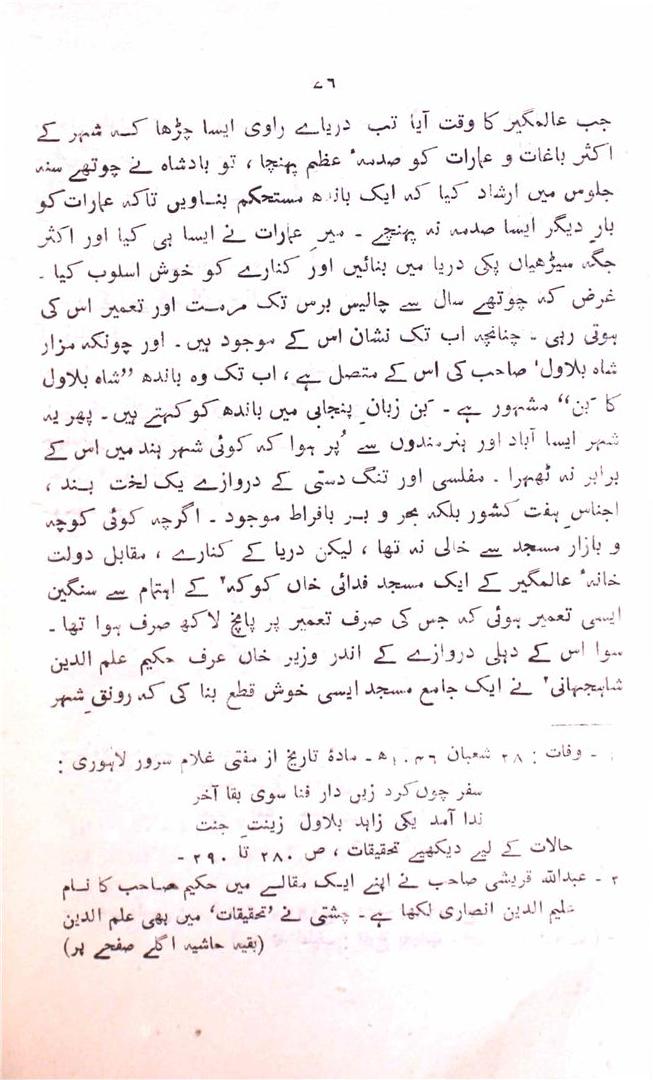 ۷۶
جب عالمگیر کا وقت آیا تب دریاے راوی ایسا چڑھا کہ شہر کے
اکثر باغات و عمارات کو صدمۂ عظم پہنچا ، تو بادشاہ نے چوتھے سنہ
جلوس میں ارشاد کیا کہ ایک باندھ مستحکم بناویں تاکہ عمارات کو
بارِ دیگر ایسا صدمہ نہ پہنچے ۔ میرِ عمارات نے ایسا ہی کیا اور اکثر
جگہ سیڑھیاں پکی دریا میں بنائیں اور کنارے کو خوش اسلوب کیا ۔
غرض کہ چوتھے سال سے چالیس برس تک مرمت اور تعمیر اس کی
ہوتی رہی ۔ چنانچہ اب تک نشان اس کے موجود ہیں ۔ اور چونکہ مزار
شاہ بلاول۱ صاحب کی اس کے متصل ہے ، اب تک وہ باندھ ”شاہ بلاول
کا بَن“ مشہور ہے ۔ بَن زبانِ پنجابی میں باندھ کو کہتے ہیں ۔ پھر یہ
شہر ایسا آباد اور ہنرمندوں سے پُر ہوا کہ کوئی شہر ہند میں اس کے
برابر نہ ٹھہرا ۔ مفلسی اور تنگ دستی کے دروازے یک لخت بند ،
اجناسِ ہفت کشور بلکہ بحر و بر بافراط موجود ۔ اگرچہ کوئی کوچہ
و بازار مسجد سے خالی نہ تھا ، لیکن دریا کے کنارے ، مقابل دولت
خانۂ عالمگیر کے ایک مسجد فدائی خاں کوکہ کے اہتمام سے سنگین
ایسی تعمیر ہوئی کہ جس کی صرف تعمیر پر پانچ لاکھ صرف ہوا تھا ۔
سوا اس کے دہلی دروازے کے اندر وزیر خاں عرف حکیم علم الدین
شاہجہانی۲ نے ایک جامع مسجد ایسی خوش قطع بنا کی کہ رونقِ شہر
۱ ۔ وفات : ۲۸ شعبان ۱۰۴۶ھ ۔ مادۂ تاریخ از مفتی غلام سرور لاہوری :
سفر چوں کرد زیں دار فنا سوی بقا آخر
ندا آمد یکی زاہد بلاول زینتِ جنت
حالات کے لیے دیکھیے تحقیقات ، ص ۲۸۰ تا ۲۹۰ ۔
۲ ۔ عبداللہ قریشی صاحب نے اپنے ایک مقالے میں حکیم صاحب کا نام
علیم الدین انصاری لکھا ہے ۔ چشتی نے ’تحقیقات‘ میں بھی علم الدین
(بقیہ حاشیہ اگلے صفحے پر)